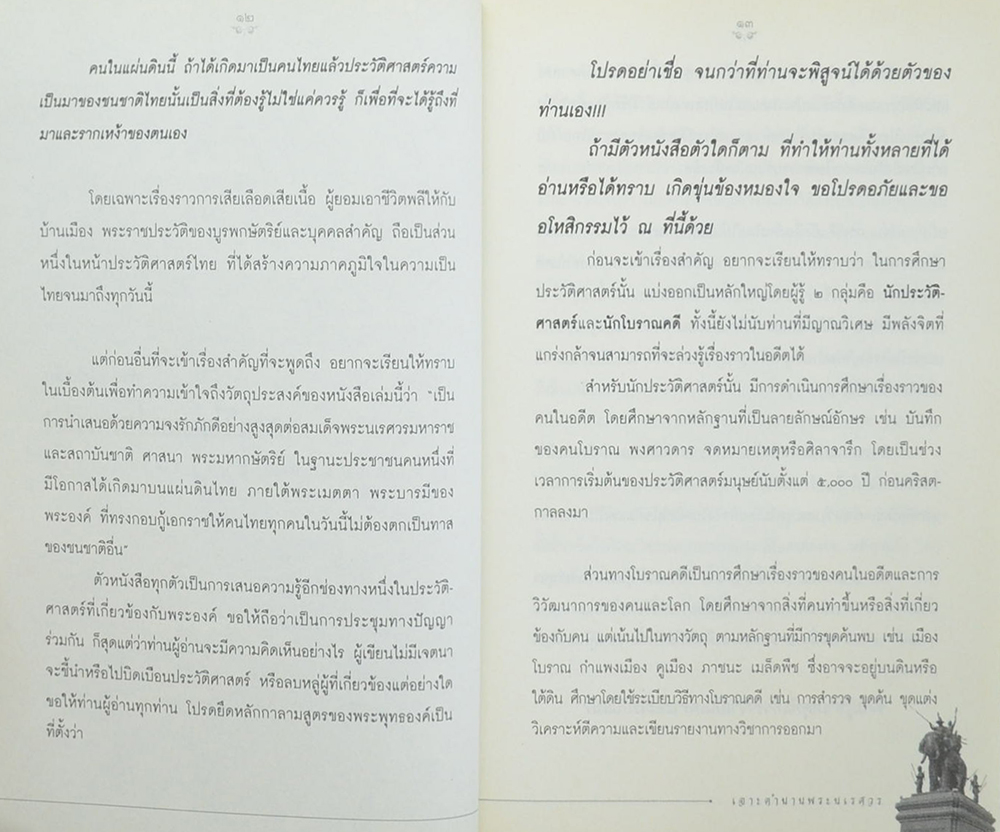 ๑๒
คนในแผ่นดินนี้ ถ้าได้เกิดมาเป็นคนไทยแล้วประวัติศาสตร์ความ
เป็นมาของชนชาติไทยนั้นเป็นสิ่งที่ต้องรู้ไม่ใช่แค่ควรรู้ ก็เพื่อที่จะได้รู้ถึงที่
มาและรากเหง้าของตนเอง
โดยเฉพาะเรื่องราวการเสียเลือดเสียเนื้อ ผู้ยอมเอาชีวิตพลีให้กับ
บ้านเมือง พระราชประวัติของบูรพกษัตริย์และบุคคลสำคัญ ถือเป็นส่วน
หนึ่งในหน้าประวัติศาสตร์ไทย ที่ได้สร้างความภาคภูมิใจในความเป็น
ไทยจนมาถึงทุกวันนี้
แต่ก่อนอื่นที่จะเข้าเรื่องสำคัญที่จะพูดถึง อยากจะเรียนให้ทราบ
ในเบื้องต้นเพื่อทำความเข้าใจถึงวัตถุประสงค์ของหนังสือเล่มนี้ว่า “เป็น
การนำเสนอด้วยความจงรักภักดีอย่างสูงสุดต่อสมเด็จพระนเรศวรมหาราช
และสถาบันชาติ ศาสนา พระมหากษัตริย์ ในฐานะประชาชนคนหนึ่งที่
มีโอกาสได้เกิดมาบนแผ่นดินไทย ภายใต้พระเมตตา พระบารมีของ
พระองค์ ที่ทรงกอบกู้เอกราชให้คนไทยทุกคนในวันนี้ไม่ต้องตกเป็นทาส
ของชนชาติอื่น”
ตัวหนังสือทุกตัวเป็นการเสนอความรู้อีกช่องทางหนึ่งในประวัติ-
ศาสตร์ที่เกี่ยวข้องกับพระองค์ ขอให้ถือว่าเป็นการประชุมทางปัญญา
ร่วมกัน ก็สุดแต่ว่าท่านผู้อ่านจะมีความคิดเห็นอย่างไร ผู้เขียนไม่มีเจตนา
จะชี้นำหรือไปบิดเบือนประวัติศาสตร์ หรือลบหลู่ผู้ที่เกี่ยวข้องแต่อย่างใด
ขอให้ท่านผู้อ่านทุกท่าน โปรดยึดหลักกาลามสูตรของพระพุทธองค์เป็น
ที่ตั้งว่า
๑๓
โปรดอย่าเชื่อ จนกว่าที่ท่านจะพิสูจน์ได้ด้วยตัวของ
ท่านเอง!!!
ถ้ามีตัวหนังสือตัวใดก็ตาม ที่ทำให้ท่านทั้งหลายที่ได้
อ่านหรือได้ทราบ เกิดขุ่นข้องหมองใจ ขอโปรดอภัยและขอ
อโหสิกรรมไว้ ณ ที่นี้ด้วย
ก่อนจะเข้าเรื่องสำคัญ อยากจะเรียนให้ทราบว่า ในการศึกษา
ประวัติศาสตร์นั้น แบ่งออกเป็นหลักใหญ่โดยผู้รู้ ๒ กลุ่มคือ นักประวัติ-
ศาสตร์และนักโบราณคดี ทั้งนี้ยังไม่นับท่านที่มีญาณวิเศษ มีพลังจิตที่
แกร่งกล้าจนสามารถที่จะล่วงรู้เรื่องราวในอดีตได้
สำหรับนักประวัติศาสตร์นั้น มีการดำเนินการศึกษาเรื่องราวของ
คนในอดีต โดยศึกษาจากหลักฐานที่เป็นลายลักษณ์อักษร เช่น บันทึก
ของคนโบราณ พงศาวดาร จดหมายเหตุหรือศิลาจารึก โดยเป็นช่วง
เวลาการเริ่มต้นของประวัติศาสตร์มนุษย์นับตั้งแต่ ๕,๐๐๐ ปี ก่อนคริสต-
กาลลงมา
ส่วนทางโบราณคดีเป็นการศึกษาเรื่องราวของคนในอดีตและการ
วิวัฒนาการของคนและโลก โดยศึกษาจากสิ่งที่คนทำขึ้นหรือสิ่งที่เกี่ยว
ข้องกับคน แต่เน้นไปในทางวัตถุ ตามหลักฐานที่มีการขุดค้นพบ เช่น เมือง
โบราณ กำแพงเมือง คูเมือง ภาชนะ เมล็ดพืช ซึ่งอาจจะอยู่บนดินหรือ
ใต้ดิน ศึกษาโดยใช้ระเบียบวิธีทางโบราณคดี เช่น การสำรวจ ขุดค้น ขุดแต่ง
วิเคราะห์ตีความและเขียนรายงานทางวิชาการออกมา
เจาะตำนานพระนเรศวร